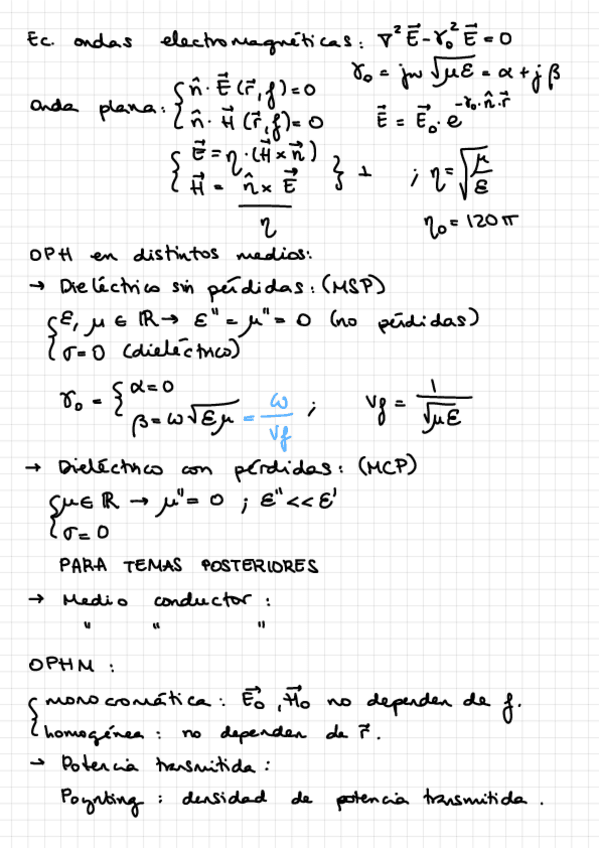 Ec. ondas electromagnéticas: ∇²E⃗ - γ₀² E⃗ = 0
γ₀ = jw √με = α + jβ
Onda plana: { n̂ · E⃗ (r⃗, f) = 0
n̂ · H⃗ (r⃗, f) = 0 E⃗ = E⃗₀ · e^(-γ₀ · n̂ · r⃗)
{ E⃗ = η · (H⃗ × n⃗)
H⃗ = (n̂ × E⃗)/η } ⊥ ; η = √(μ/ε)
η₀ = 120π
OPH en distintos medios:
→ Dieléctrico sin pérdidas: (MSP)
{ ε, μ ∈ ℝ → ε'' = μ'' = 0 (no pérdidas)
σ = 0 (dieléctrico)
γ₀ = { α = 0
β = ω√εμ = ω/vf ; vf = 1/√με
→ Dieléctrico con pérdidas: (MCP)
{ μ ∈ ℝ → μ'' = 0 ; ε'' << ε'
σ = 0
PARA TEMAS POSTERIORES
→ Medio conductor:
" " "
OPHM:
{ monocromática: E⃗₀, H⃗₀ no dependen de f.
homogénea: no dependen de r⃗.
→ Potencia transmitida:
Poynting: densidad de potencia transmitida.